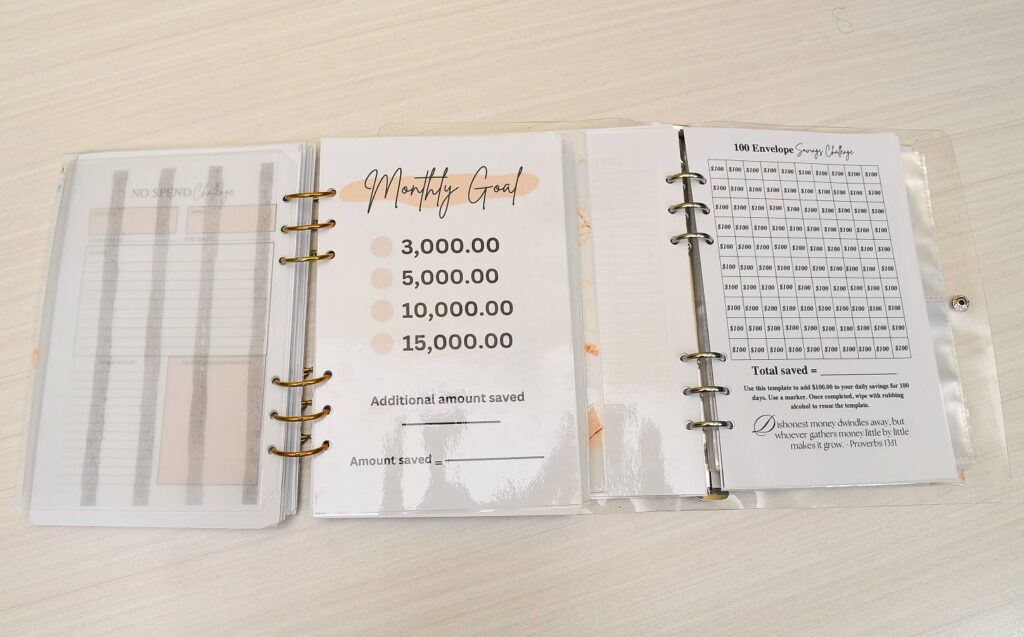 NO SPEND Challenge
Monthly Goal
3,000.00
5,000.00
10,000.00
15,000.00
Additional amount saved
Amount saved =
100 Envelope Savings Challenge
$100 $100 $100 $100 $100 $100 $100 $100 $100 $100
$100 $100 $100 $100 $100 $100 $100 $100 $100 $100
$100 $100 $100 $100 $100 $100 $100 $100 $100 $100
$100 $100 $100 $100 $100 $100 $100 $100 $100 $100
$100 $100 $100 $100 $100 $100 $100 $100 $100 $100
$100 $100 $100 $100 $100 $100 $100 $100 $100 $100
$100 $100 $100 $100 $100 $100 $100 $100 $100 $100
$100 $100 $100 $100 $100 $100 $100 $100 $100 $100
$100 $100 $100 $100 $100 $100 $100 $100 $100 $100
$100 $100 $100 $100 $100 $100 $100 $100 $100 $100
Total saved =
Use this template to add $100.00 to your daily savings for 100
days. Use a marker. Once completed, wipe with rubbing
alcohol to reuse the template.
Dishonest money dwindles away, but
whoever gathers money little by little
makes it grow. - Proverbs 13:11